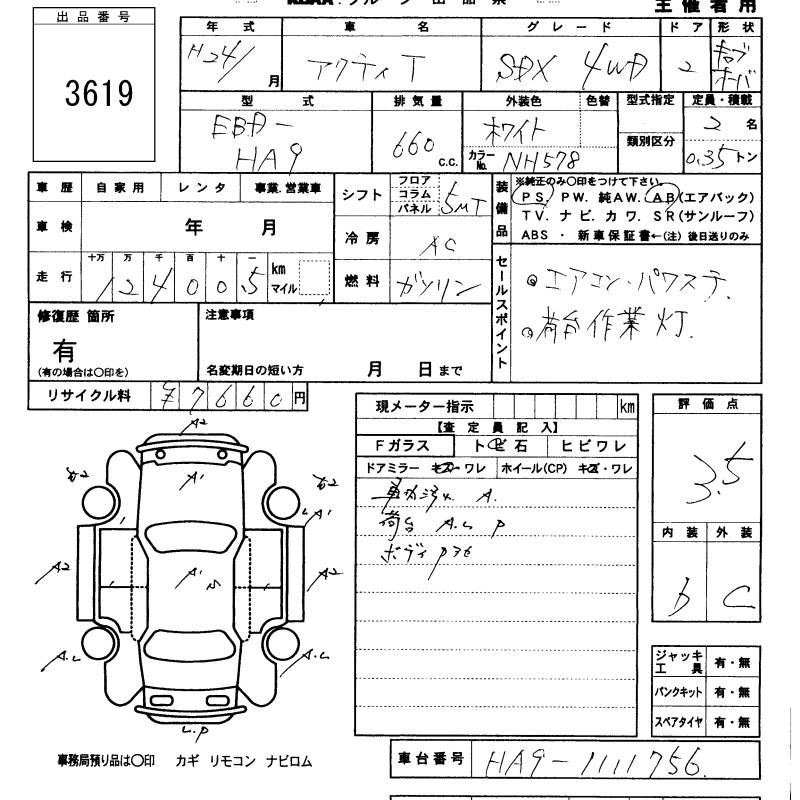 主催者用
出品番号
3619
年式 車名 グレード ドア 形状
H24/ 月 アクティT SDX 4WD 2 キャブオーバ
型式 排気量 外装色 色替 型式指定 定員・積載
EBD-HA9 660 c.c. ホワイト カラーNo. NH578 類別区分 2 名 0.35 トン
車歴 自家用 レンタ 事業.営業車
車検 年 月
走行 十万 万 千 百 十 一 124005 km マイル
シフト フロア コラム パネル 5MT
冷房 AC
燃料 ガソリン
装備品 ※純正のみ〇印をつけて下さい。
PS. PW. 純AW. AB(エアバック)
TV. ナビ. カワ. SR(サンルーフ)
ABS ・ 新車保証書←(注) 後日送りのみ
セールスポイント
◎エアコン・パワステ.
◎荷台作業灯.
修復歴 箇所
有
(有の場合は〇印を)
注意事項
名変期日の短い方 月 日まで
リサイクル料 ¥7660円
現メーター指示 km
【査定員記入】
Fガラス トビ石 ヒビワレ
ドアミラー キズ・ワレ ホイール(CP) キズ・ワレ
車内汚れ A.
荷台 A.L P
ボディ P36
評価点
3.5
内装 外装
b C
ジャッキ工具 有・無
パンクキット 有・無
スペアタイヤ 有・無
A2
A1
A1
A2
A1 S
A2
A.L
A.L
L.P
事務局預り品は〇印 カギ リモコン ナビロム
車台番号 HA9-1111756